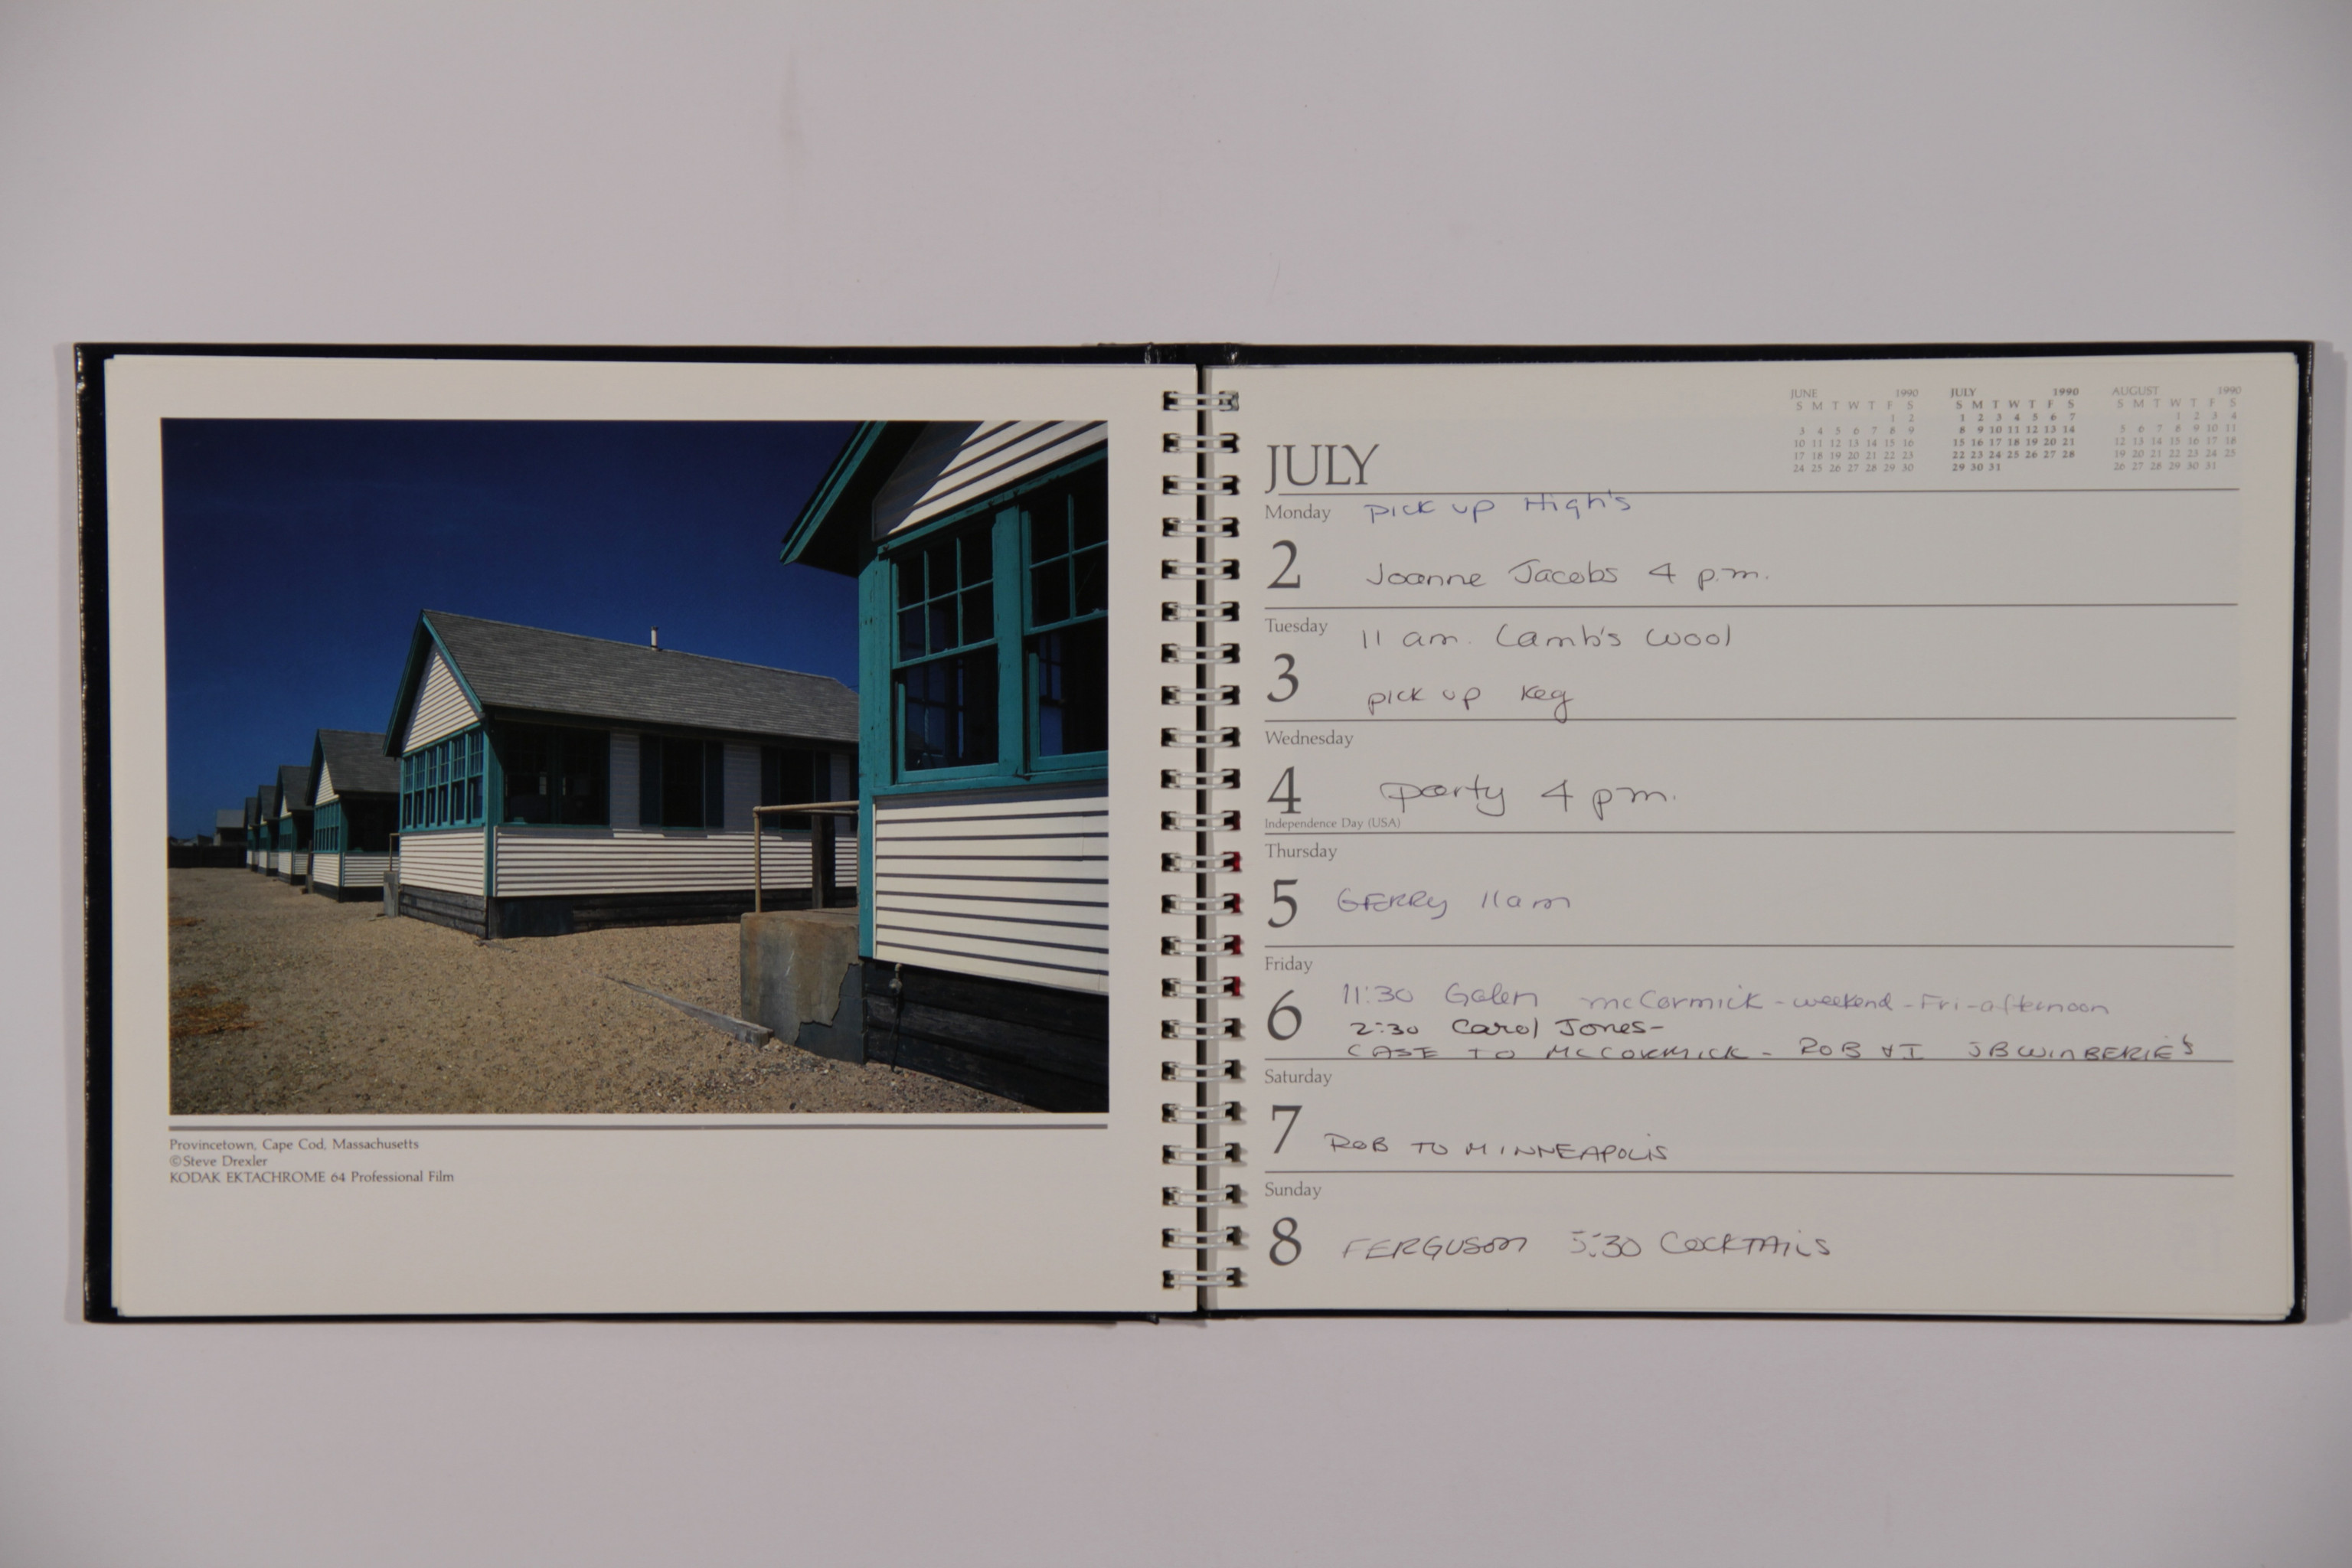 Provincetown, Cape Cod, Massachusetts
©Steve Drexler
KODAK EKTACHROME 64 Professional Film
JUNE 1990
S M T W T F S
1 2
3 4 5 6 7 8 9
10 11 12 13 14 15 16
17 18 19 20 21 22 23
24 25 26 27 28 29 30
JULY 1990
S M T W T F S
1 2 3 4 5 6 7
8 9 10 11 12 13 14
15 16 17 18 19 20 21
22 23 24 25 26 27 28
29 30 31
AUGUST 1990
S M T W T F S
1 2 3 4
5 6 7 8 9 10 11
12 13 14 15 16 17 18
19 20 21 22 23 24 25
26 27 28 29 30 31
JULY
Monday pick up High's
2 Joanne Jacobs 4 p.m.
Tuesday 11 am. Lamb's Wool
3 pick up keg
Wednesday
4 party 4 pm.
Independence Day (USA)
Thursday
5 GERRY 11am
Friday
6 11:30 Galen mcCormick - weekend - Fri - afternoon
2:30 Carol Jones-
CASE TO McCORMICK - ROB & I JB WINBERIE'S
Saturday
7 ROB TO MINNEAPOLIS
Sunday
8 FERGUSON 5:30 COCKTAILS